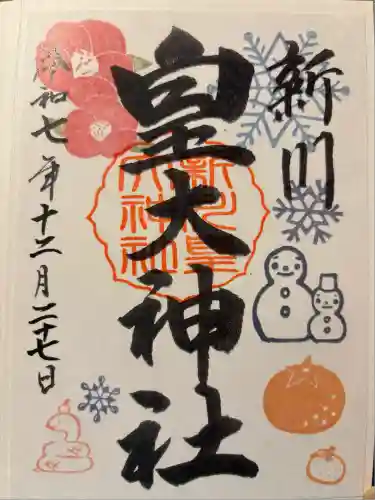 新川
皇大神社
令和七年十二月二十七日
新川皇大神社